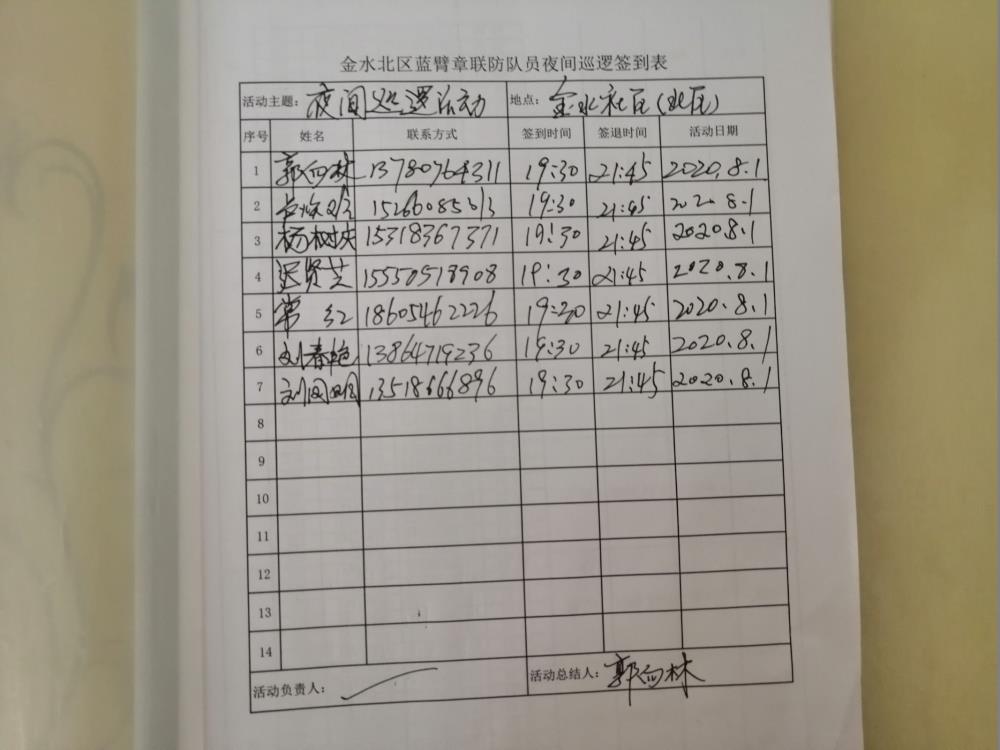 金水北区蓝臂章联防队员夜间巡逻签到表
活动主题： 夜间巡逻活动 地点： 金水社区(北区)
序号 姓名 联系方式 签到时间 签退时间 活动日期
1 郭向林 13780764311 19:30 21:45 2020.8.1
2 15266085613 19:30 21:45 2020.8.1
3 杨树庆 15318367371 19:30 21:45 2020.8.1
4 迟贤芝 15550518908 19:30 21:45 2020.8.1
5 常红 18605462226 19:30 21:45 2020.8.1
6 刘春艳 13864719236 19:30 21:45 2020.8.1
7 刘国明 13518666896 19:30 21:45 2020.8.1
8
9
10
11
12
13
14
活动负责人： 活动总结人： 郭向林